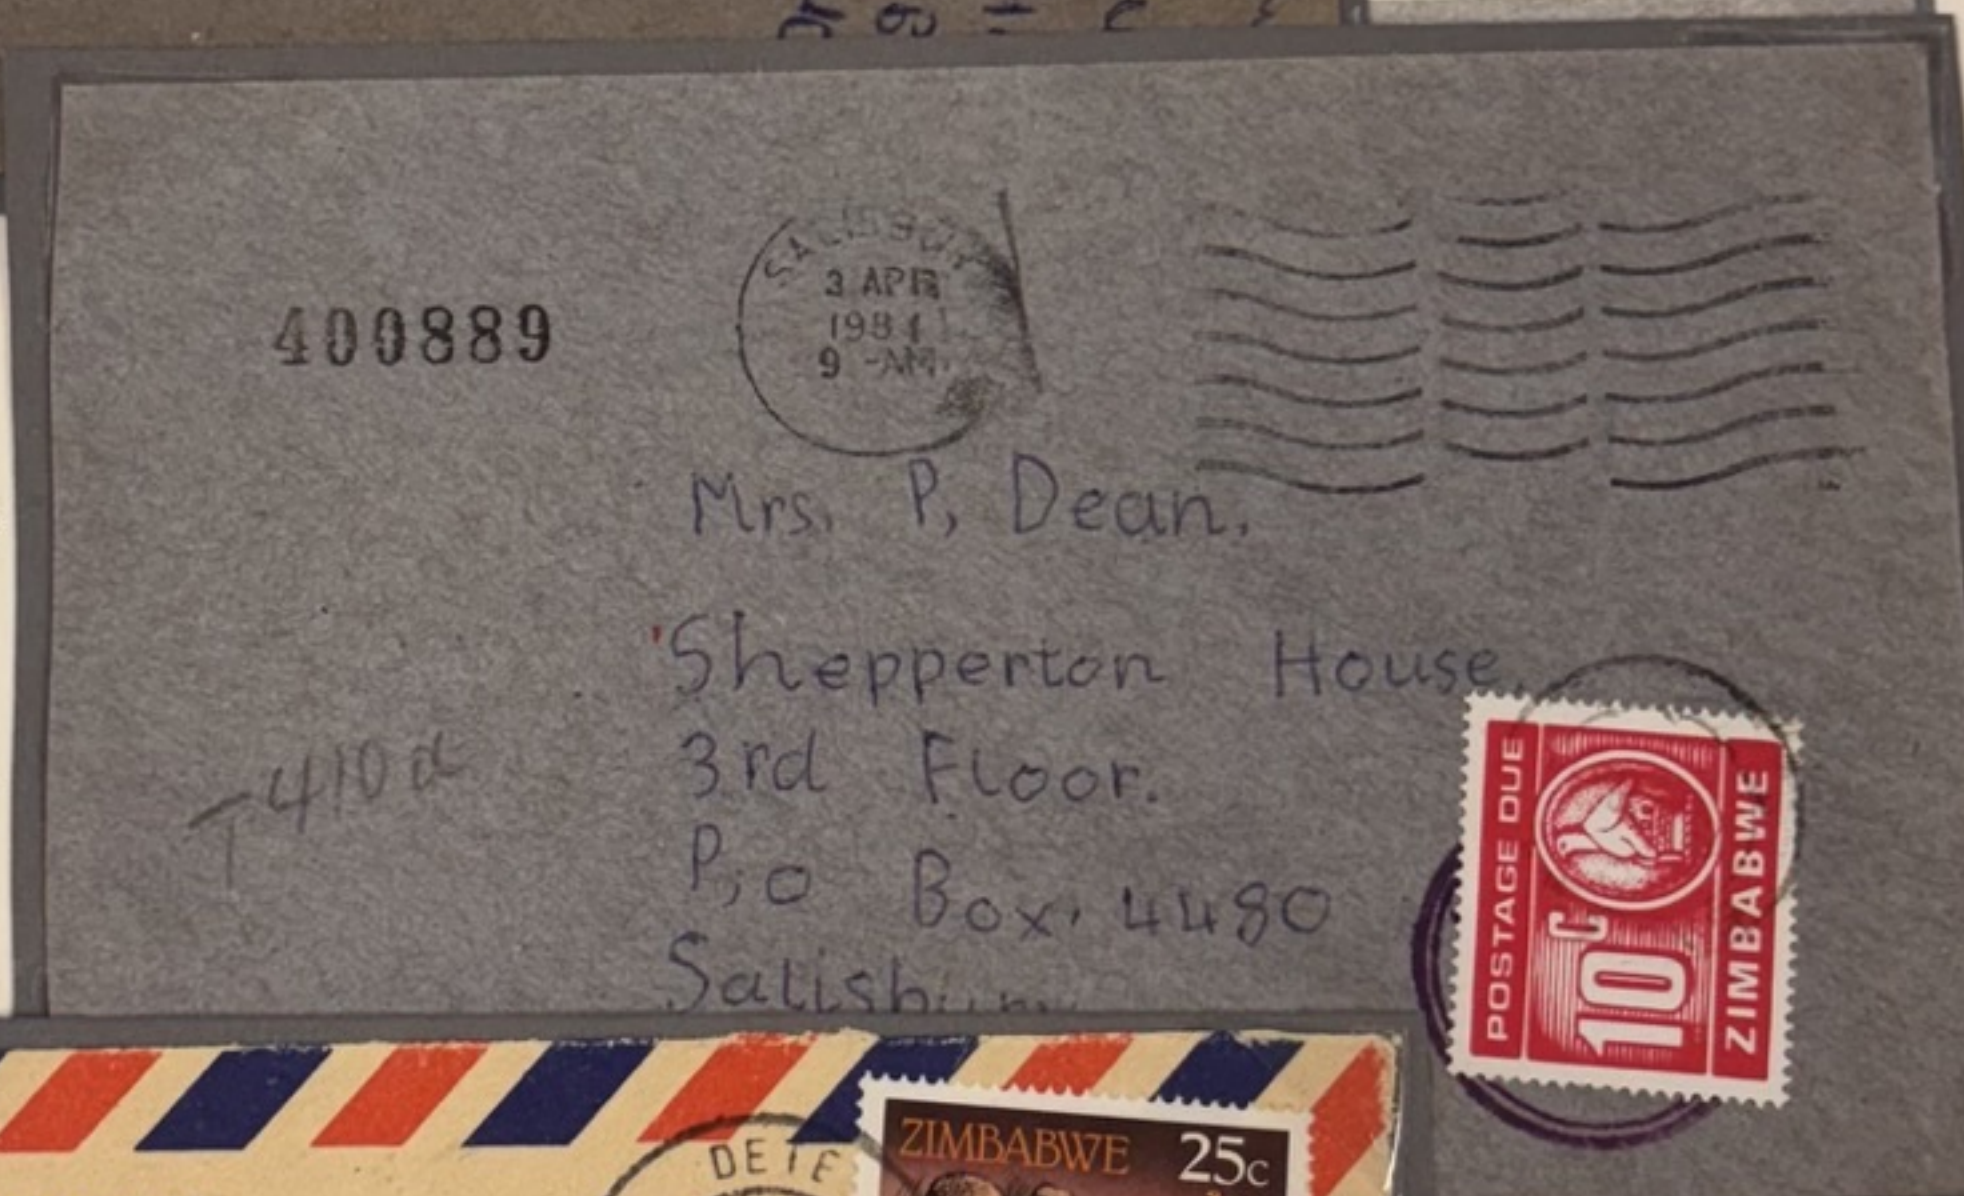 SALISBURY
3 APR
1981
9 -AM
400889
Mrs. P, Dean.
Shepperton House.
3rd Floor.
P,O Box. 4480
Salisbury
T 410 d
POSTAGE DUE
10c
ZIMBABWE
DETE
ZIMBABWE 25c